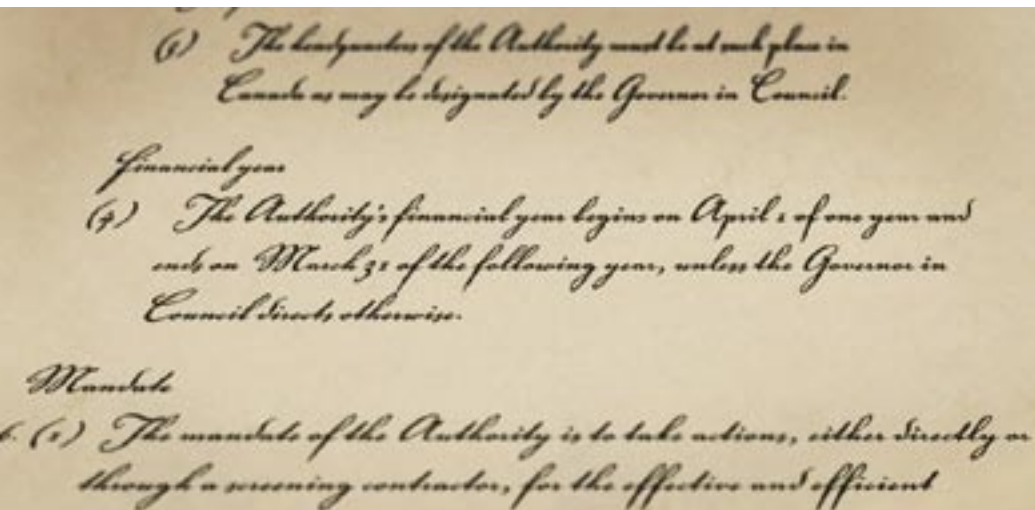 The headquarters of the Authority must be at such place in
Canada as may be designated by the Governor in Council.
Financial year
The Authority's financial year begins on April 1 of one year and
ends on March 31 of the following year, unless the Governor in
Council directs otherwise.
Mandate
6. (1) The mandate of the Authority is to take actions, either directly or
through a screening contractor, for the effective and efficient